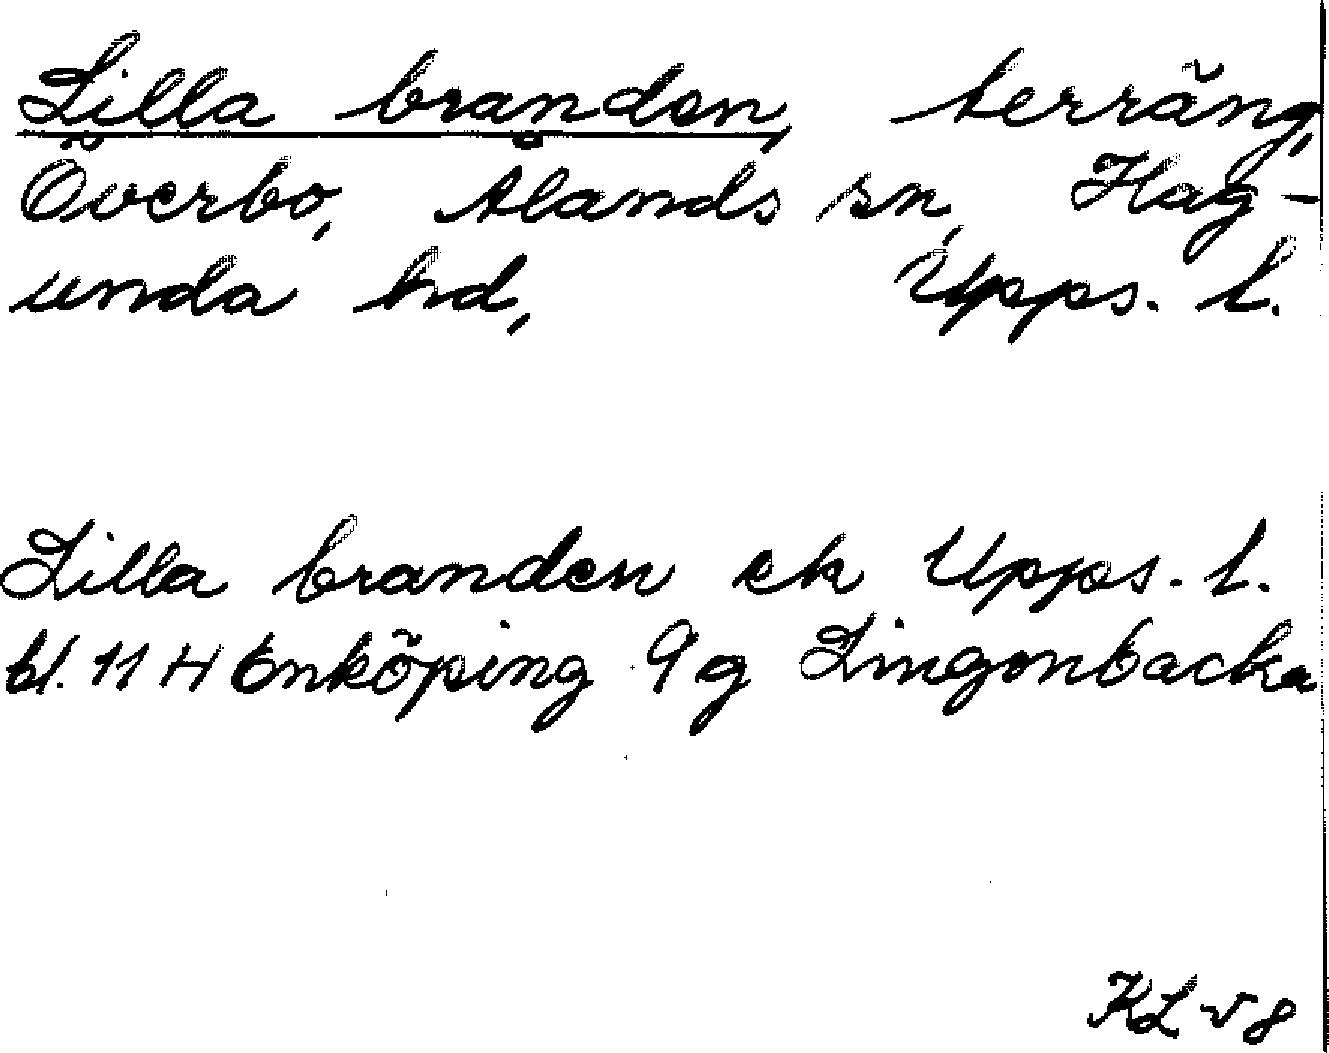 Lilla branden, terräng,
Överbo, Ålands sn, Hag-
unda hd, Upps. l.
Lilla branden ek Upps. l.
bl. 11 H Enköping 9 g Lingonbacka
KL